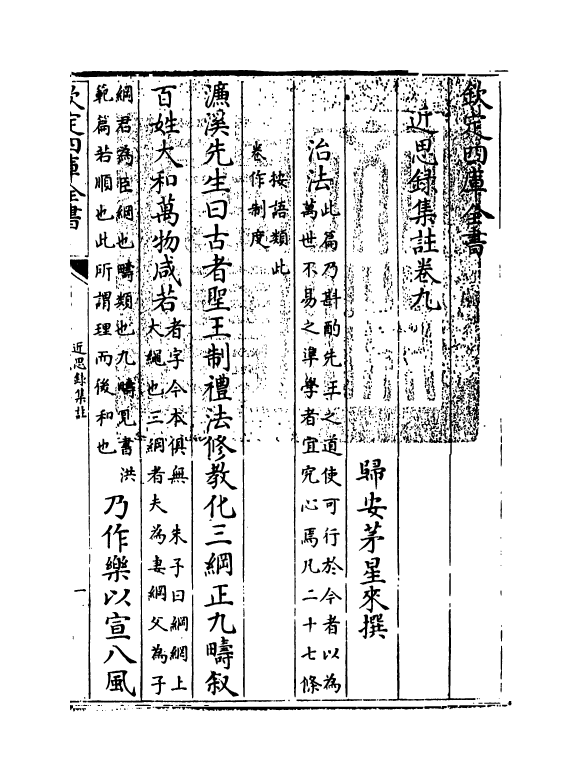 欽定四庫全書
近思錄集註卷九
歸安茅星來撰
治法此篇乃斟酌先王之道使可行於今者以為
萬世不易之準學者宜究心焉凡二十七條
按語類此
卷作制度
濂溪先生曰古者聖王制禮法修教化三綱正九疇叙
百姓大和萬物咸若者字今本俱無　朱子曰綱網上
大繩也三綱者夫為妻綱父為子
綱君為臣綱也疇類也九疇見書洪
範篇若順也此所謂理而後和也
乃作樂以宣八風
欽定四庫全書
近思錄集註
一